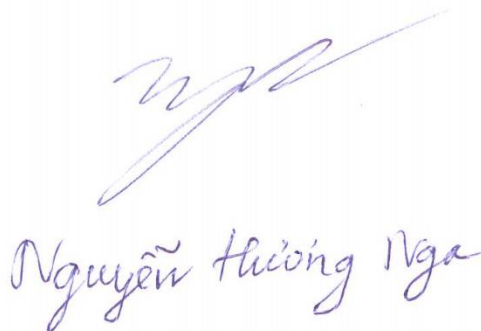 Nguyễn Hương Nga